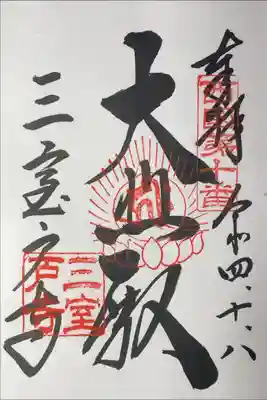 奉拝 令和四、十、八
西国第十番
大悲殿
三室戸寺
三室
戸寺